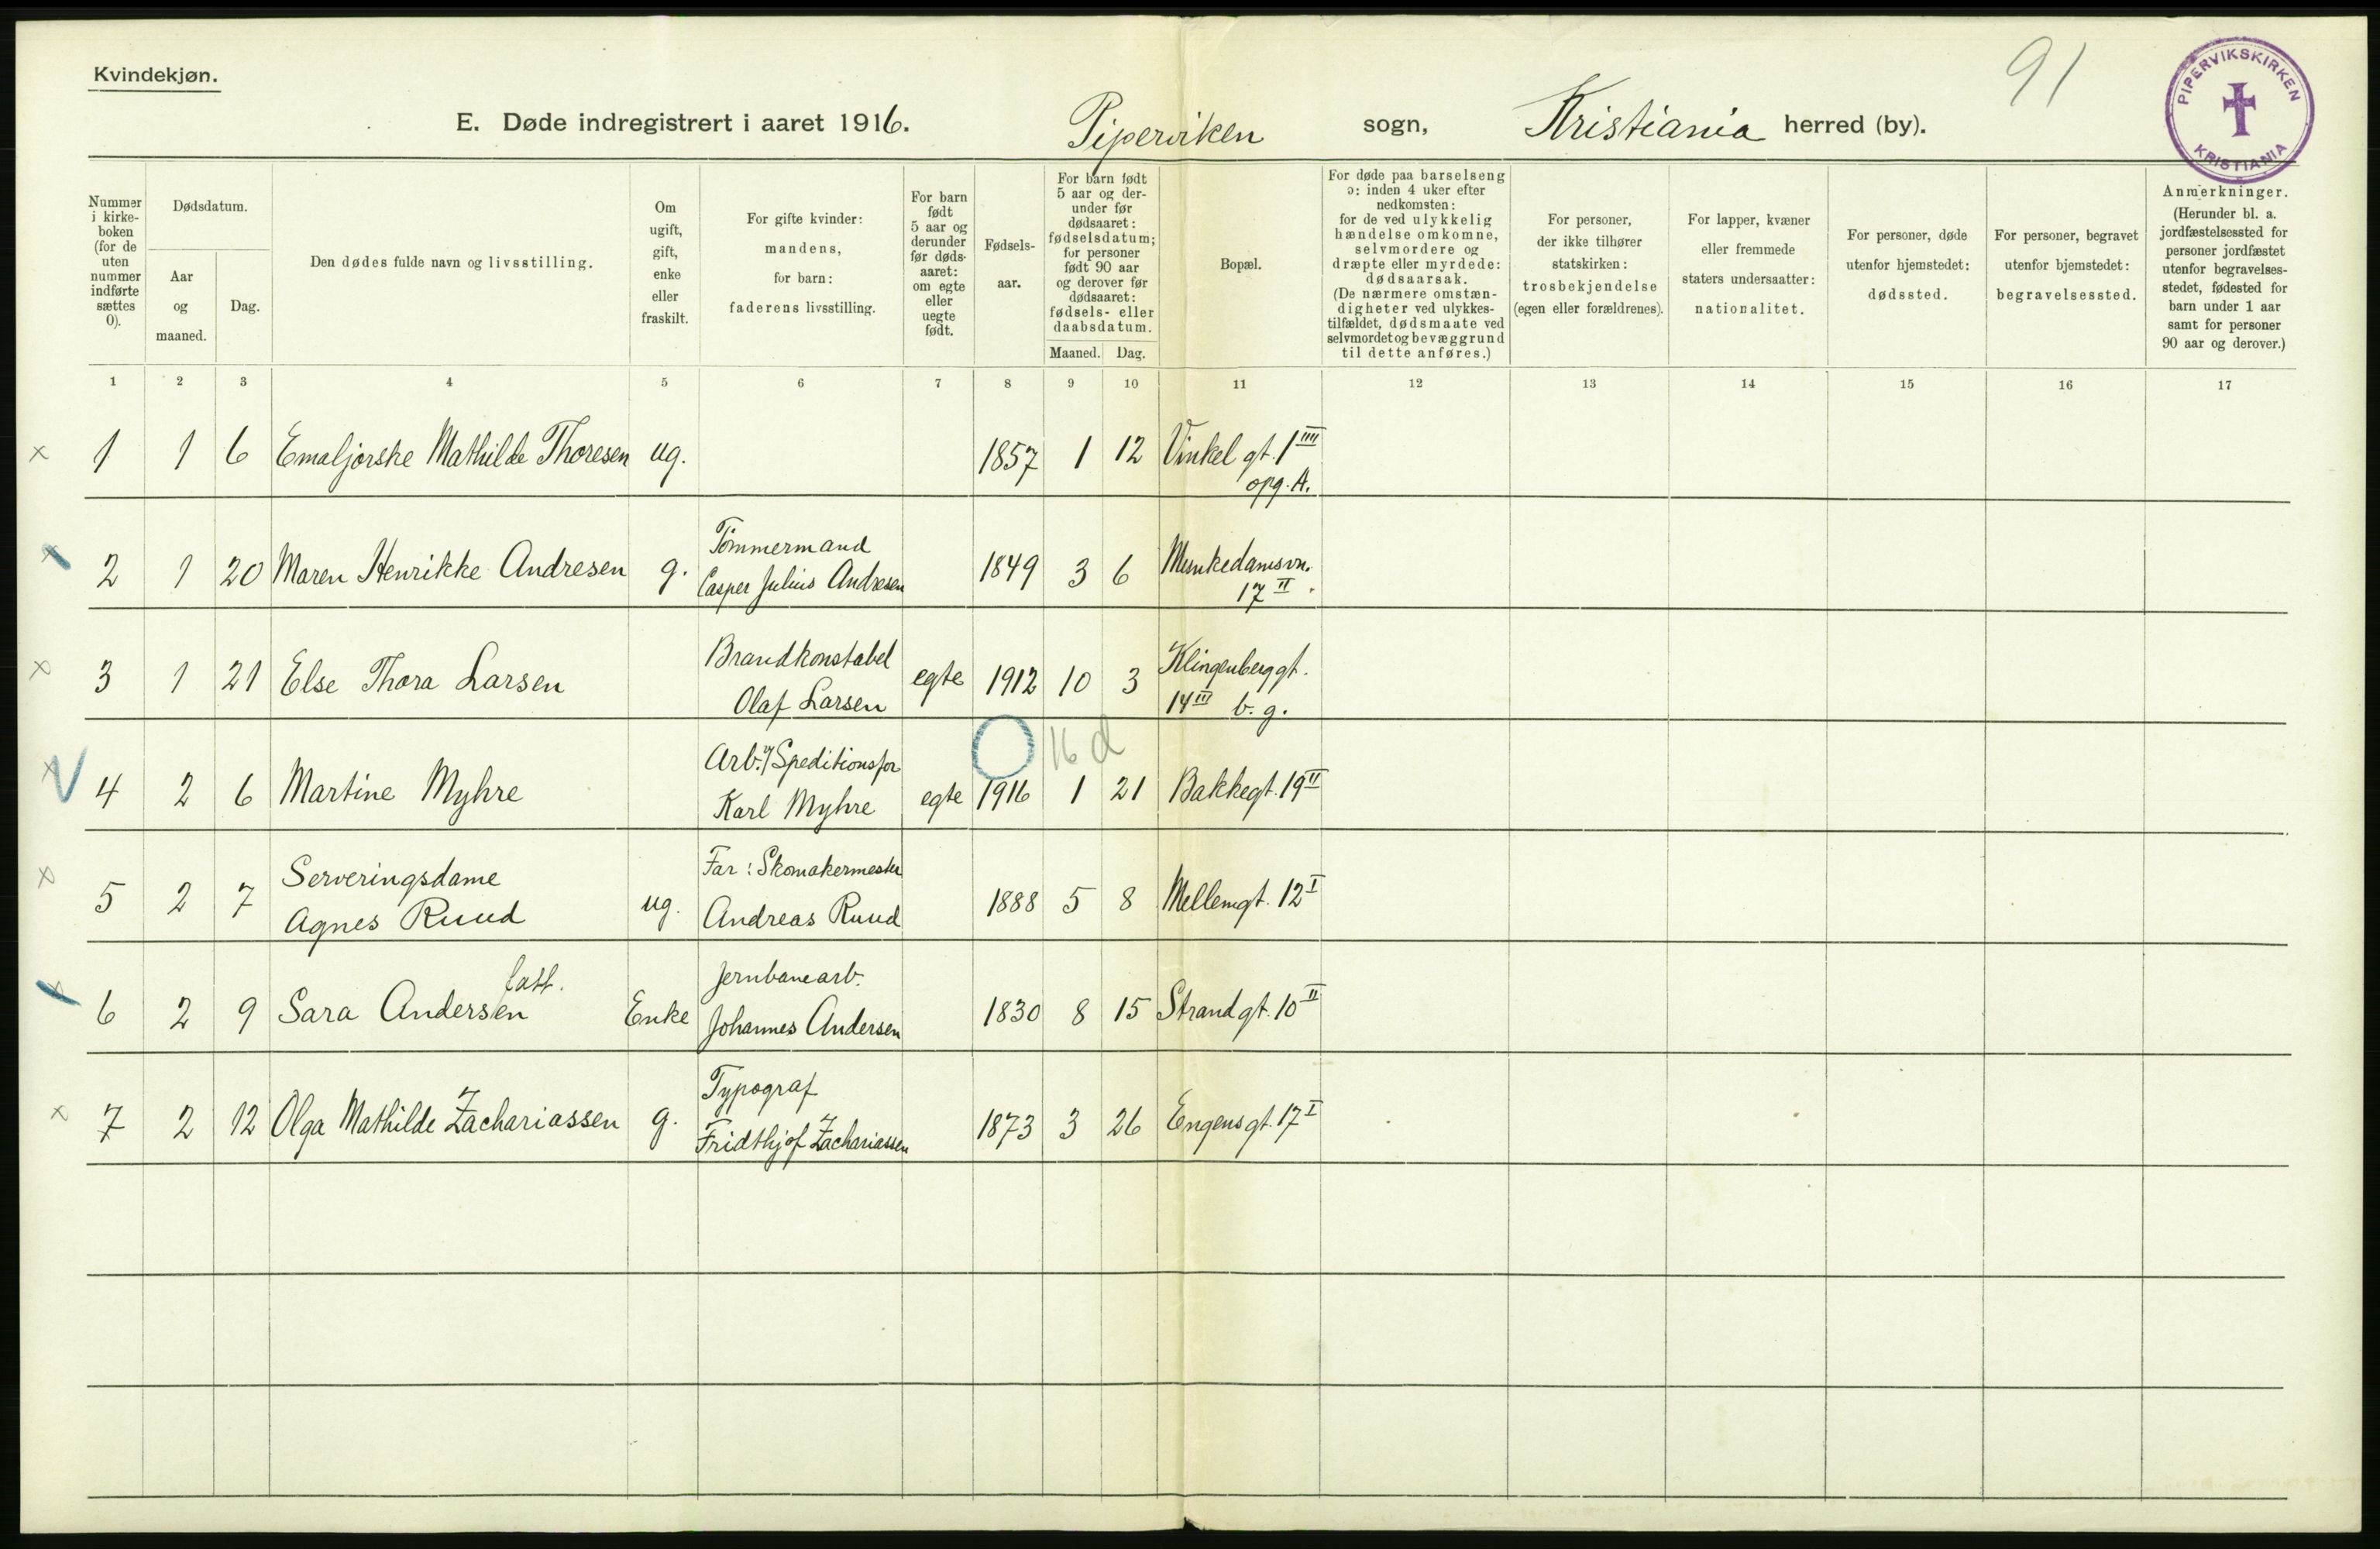 Kvindekjøn.
91
PIPERVIKSKIRKEN
KRISTIANIA
E. Døde indregistrert i aaret 1916. Piperviken sogn, Kristiania herred (by).
Nummer i kirke-boken (for de uten nummer indførte sættes 0).
Dødsdatum.
Aar og maaned.
Dag.
Den dødes fulde navn og livsstilling.
Om ugift, gift, enke eller fraskilt.
For gifte kvinder: mandens, for barn: faderens livsstilling.
For barn født 5 aar og derunder før døds-aaret: om egte eller uegte født.
Fødsels-aar.
For barn født 5 aar og der-under før dødsaaret: fødselsdatum; for personer født 90 aar og derover før dødsaaret: fødsels- eller daabsdatum.
Maaned. Dag.
Bopæl.
For døde paa barselseng ɔ: inden 4 uker efter nedkomsten: for de ved ulykkelig hændelse omkomne, selvmordere og dræpte eller myrdede: dødsaarsak. (De nærmere omstæn-digheter ved ulykkes-tilfældet, dødsmaate ved selvmordet og bevæggrund til dette anføres.)
For personer, der ikke tilhører statskirken: trosbekjendelse (egen eller forældrenes).
For lapper, kvæner eller fremmede staters undersaatter: nationalitet.
For personer, døde utenfor hjemstedet: dødssted.
For personer, begravet utenfor hjemstedet: begravelsessted.
Anmerkninger. (Herunder bl. a. jordfæstelsessted for personer jordfæstet utenfor begravelses-stedet, fødested for barn under 1 aar samt for personer 90 aar og derover.)
1 2 3 4 5 6 7 8 9 10 11 12 13 14 15 16 17
x 1 1 6 Emaljørske Mathilde Thoresen ug. 1857 1 12 Vinkel gt. 1 IIII
opg. A.
x 2 1 20 Maren Henrikke Andresen g. Tømmermand
Casper Julius Andresen 1849 3 6 Munkedamsvn.
17 II.
x 3 1 21 Else Thora Larsen Brandkonstabel
Olaf Larsen egte 1912 10 3 Klingenberggt.
14 III b. g.
16 d
x 4 2 6 Martine Myhre Arb. v/ Speditionsfor
Karl Myhre egte 1916 1 21 Bakkegt. 19 II
x 5 2 7 Serveringsdame
Agnes Ruud ug. Far: Skomakermester
Andreas Ruud 1888 5 8 Mellemgt. 12 I
x 6 2 9 Sara Andersen fatt. Enke Jernbanearb.
Johannes Andersen 1830 8 15 Strandgt. 10 II
x 7 2 12 Olga Mathilde Zachariassen g. Typograf
Fridthjof Zachariassen 1873 3 26 Engensgt. 17 I